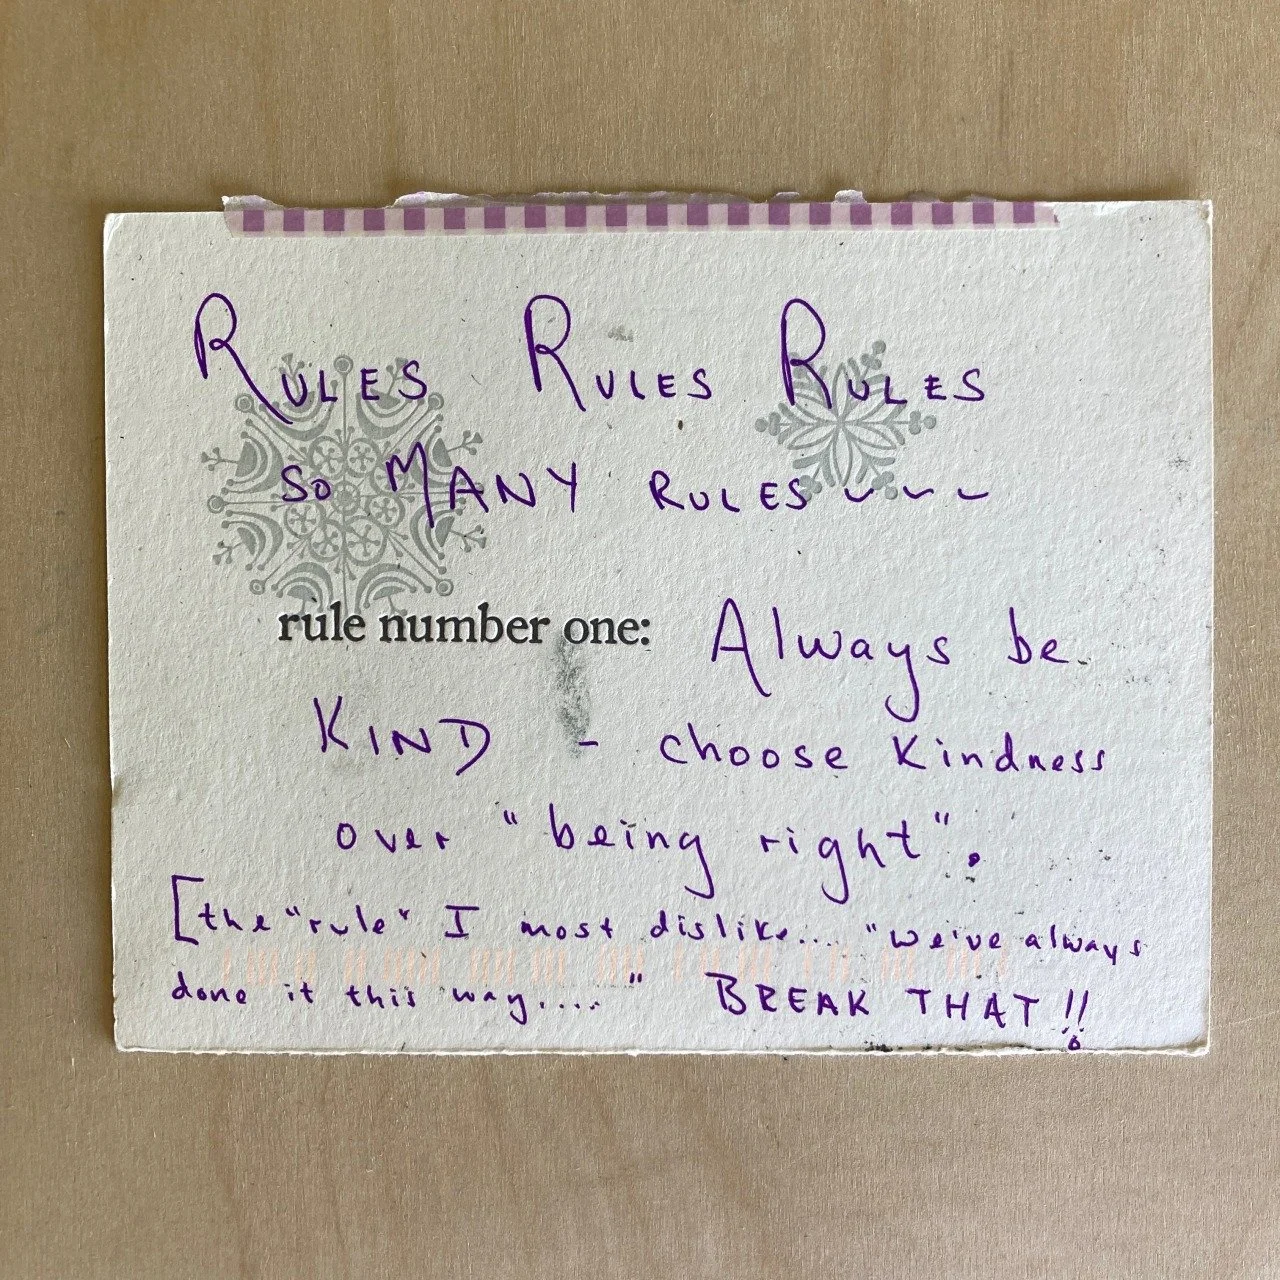 RULES RULES RULES
SO MANY RULES ~ ~ ~
rule number one: Always be
KIND - choose kindness
over "being right".
[the "rule" I most dislike.... "we've always
done it this way....." BREAK THAT!!